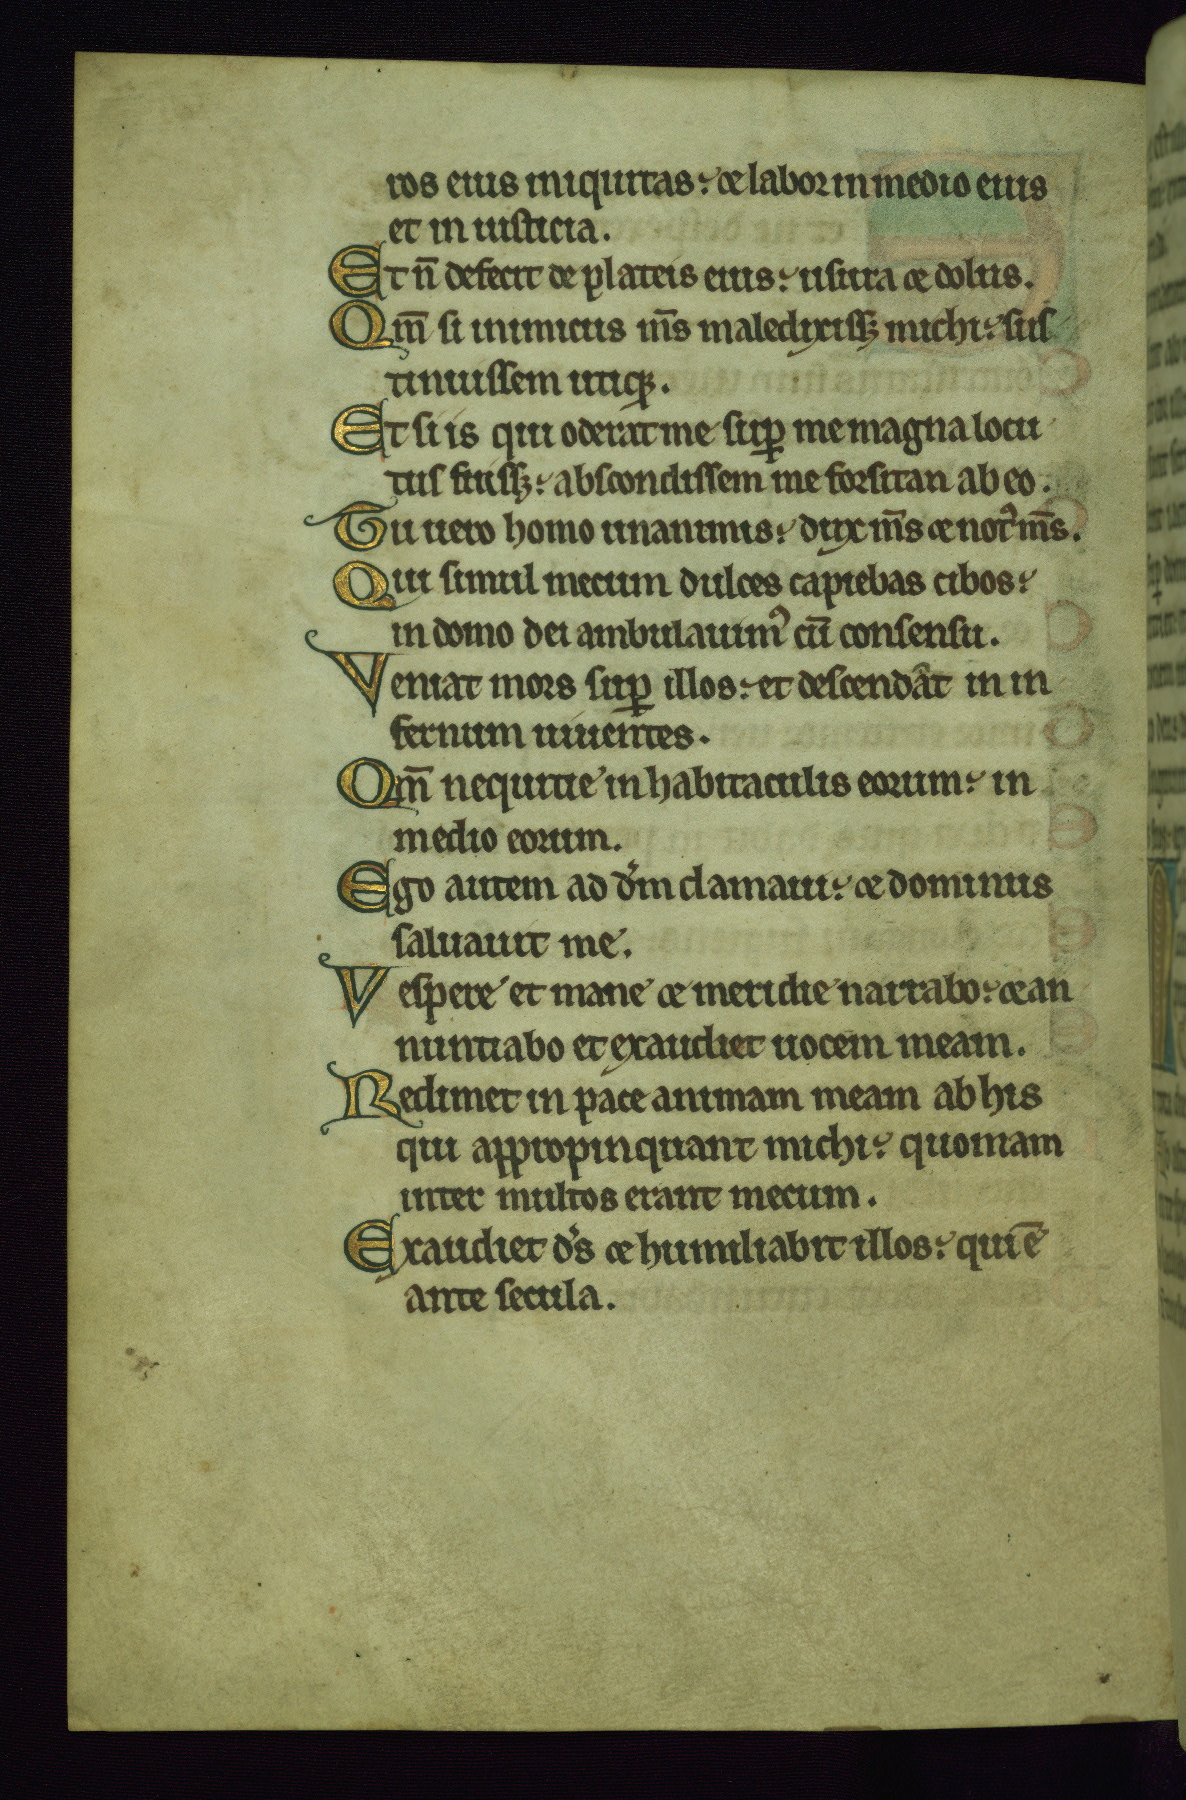 ros eius iniquitas: & labor in medio eius
et in iusticia.
Et n̄ defecit de plateis eius: usura & dolus.
Qm̄ si inimicus m̄s maledixissꝫ michi: sus
tinuissem utiqꝫ.
Et si is qui oderat me suꝑ me magna locu
tus fuissꝫ: abscondissem me forsitan ab eo.
Tu uero homo unanimis: dux m̄s & not᷒ m̄s.
Qui simul mecum dulces capiebas cibos:
in domo dei ambulauim᷒ cū consensu.
Veniat mors suꝑ illos: et descendāt in in
fernum uiuentes.
Qm̄ nequitie in habitaculis eorum: in
medio eorum.
Ego autem ad dn̄m clamaui: & dominus
saluauit me.
Vespere et mane & meridie narrabo: & an
nuntiabo et exaudiet uocem meam.
Redimet in pace animam meam ab his
qui appropinquant michi: quoniam
inter multos erant mecum.
Exaudiet ds̄ & humiliabit illos: qui ē
ante secula.